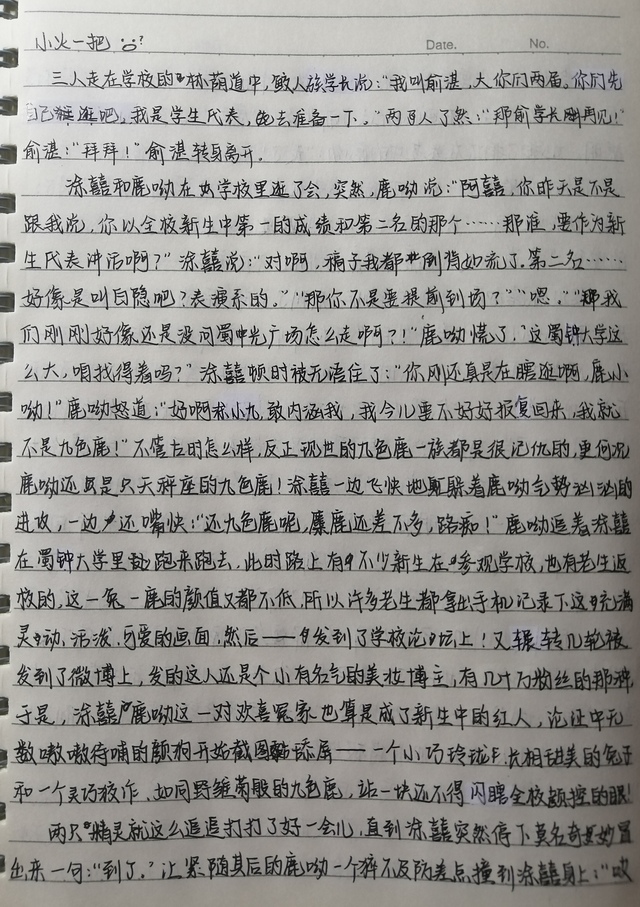 小火一把
Date. No.
三人走在学校的林荫道中,鲛人族学长说:“我叫俞湛,大你们两届。你们先
自己逛逛吧,我是学生代表,先去准备一下。”两人了然:“那俞学长再见!”
俞湛:“拜拜!”俞湛转身离开。
涂囍和鹿呦在学校里逛了会,突然,鹿呦说:“阿囍,你昨天是不是
跟我说,你以全校新生中第一的成绩和第二名的那个……那谁,要作为新
生代表讲话啊?”涂囍说:“对啊,稿子我都倒背如流了。第二名……
好像是叫白隐吧?表演系的。”“那你不是要提前到场?”“嗯。”“那我
们刚刚好像还是没问蜀中光广场怎么走啊?!”鹿呦慌了。“这蜀钟大学这
么大,咱找得着吗?”涂囍顿时被无语住了:“你刚还真是在瞎逛啊,鹿小
呦!”鹿呦怒道:“好啊小九,敢内涵我,我今儿要不好好报复回来,我就
不是九色鹿!”不管古时怎么样,反正现世的九色鹿一族都是很记仇的,更何况
鹿呦还是只天秤座的九色鹿!涂囍一边飞快地躲着鹿呦气势汹汹的
进攻,一边还嘴快:“还九色鹿呢,麋鹿还差不多,路痴!”鹿呦追着涂囍
在蜀钟大学里跑来跑去,此时路上有不少新生在参观学校,也有老生返
校的,这一兔一鹿的颜值又都不低,所以许多老生都拿出手机记录下这充满
灵动、活泼、可爱的画面,然后——发到了学校论坛上!又辗转几轮被
发到了微博上,发的这人还是个小有名气的美妆博主,有几十万粉丝的那种
于是,涂囍鹿呦这一对欢喜冤家也算是成了新生中的红人,论坛中无
数嗷嗷待哺的颜狗开始截图舔屏——一个小巧玲珑、长相甜美的兔子
和一个灵巧、如同野雏菊般的九色鹿,站一块还不得闪瞎全校颜控的眼!
两只精灵就这么追追打打了好一会儿,直到涂囍突然停下莫名奇妙冒
出来一句:“到了。”让紧随其后的鹿呦一个猝不及防差点撞到涂囍身上:“哎